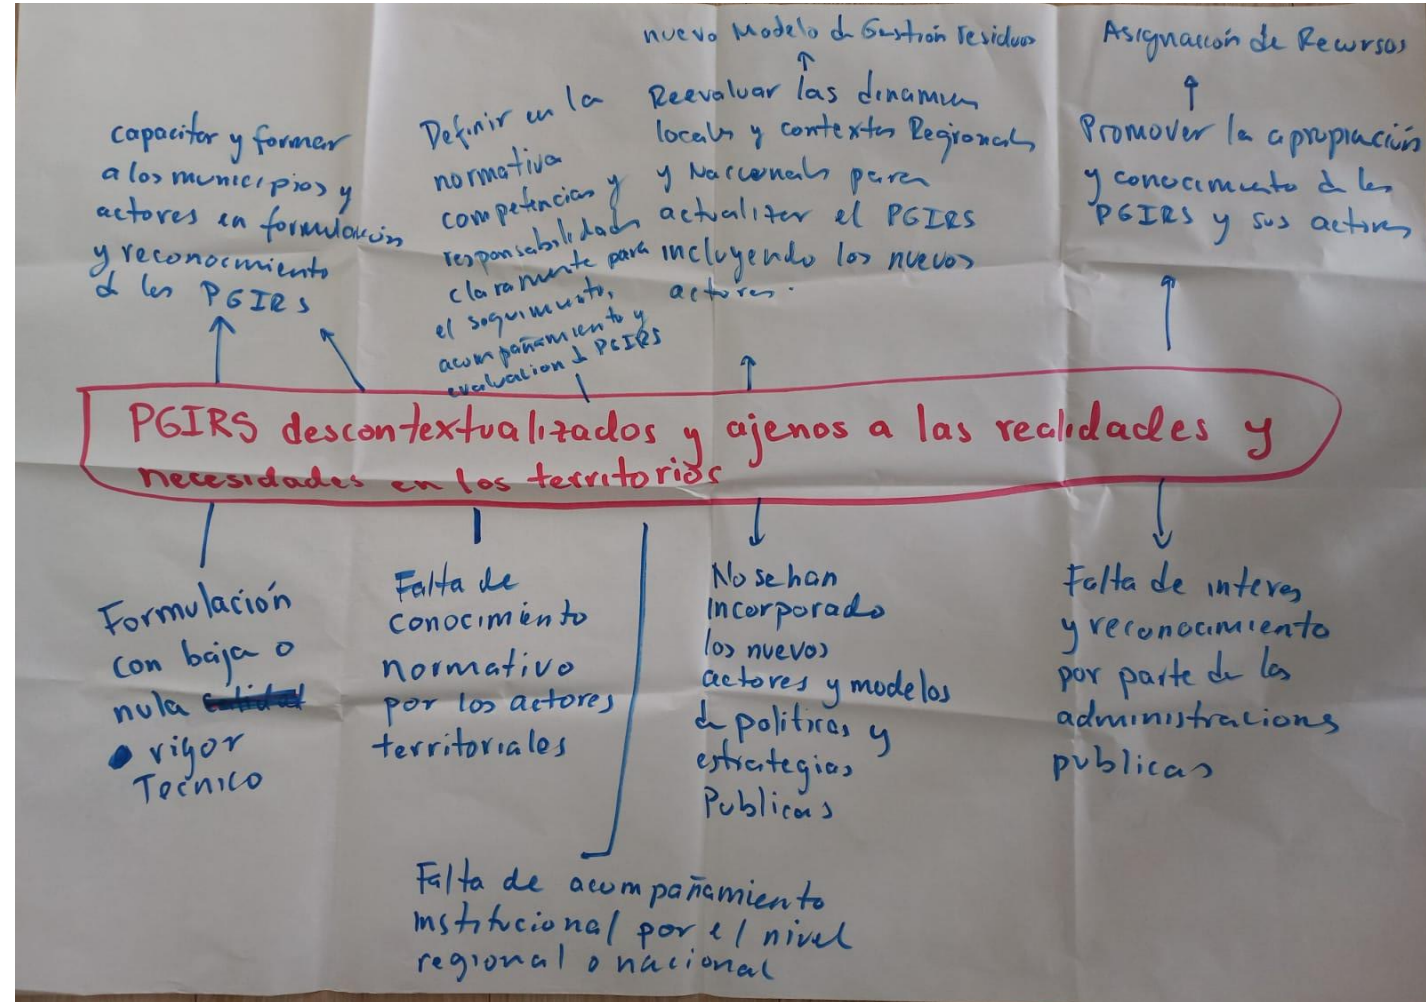 nuevo Modelo de Gestión residuos
Asignación de Recursos
capacitar y formar
a los municipios y
actores en formulación
y reconocimiento
de los PGIRS
Definir en la
normativa
competencias y
responsabilidades
claramente para
el seguimiento,
acompañamiento y
evaluacion d PGIRS
Reevaluar las dinamicas
locales y contextos Regionales
y Nacionales para
actualizar el PGIRS
incluyendo los nuevos
actores.
Promover la apropiación
y conocimiento de los
PGIRS y sus actores
PGIRS descontextualizados y ajenos a las realidades y
necesidades en los territorios
Formulación
con baja o
nula
rigor
Tecnico
Falta de
conocimiento
normativo
por los actores
territoriales
No se han
incorporado
los nuevos
actores y modelos
de politicas y
estrategias
Publicas
Falta de interes
y reconocimiento
por parte de las
administraciones
publicas
Falta de acompañamiento
institucional por el nivel
regional o nacional